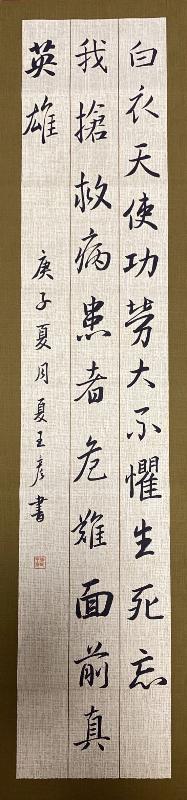 白衣天使功劳大不惧生死忘
我抢救病患者危难面前真
英雄
庚子夏月夏王彦书